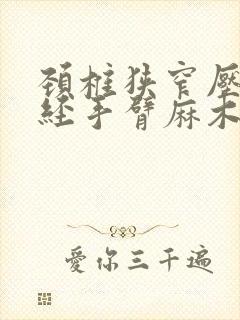 頚椎狹窄壓
經手臂麻木
愛你三千遍